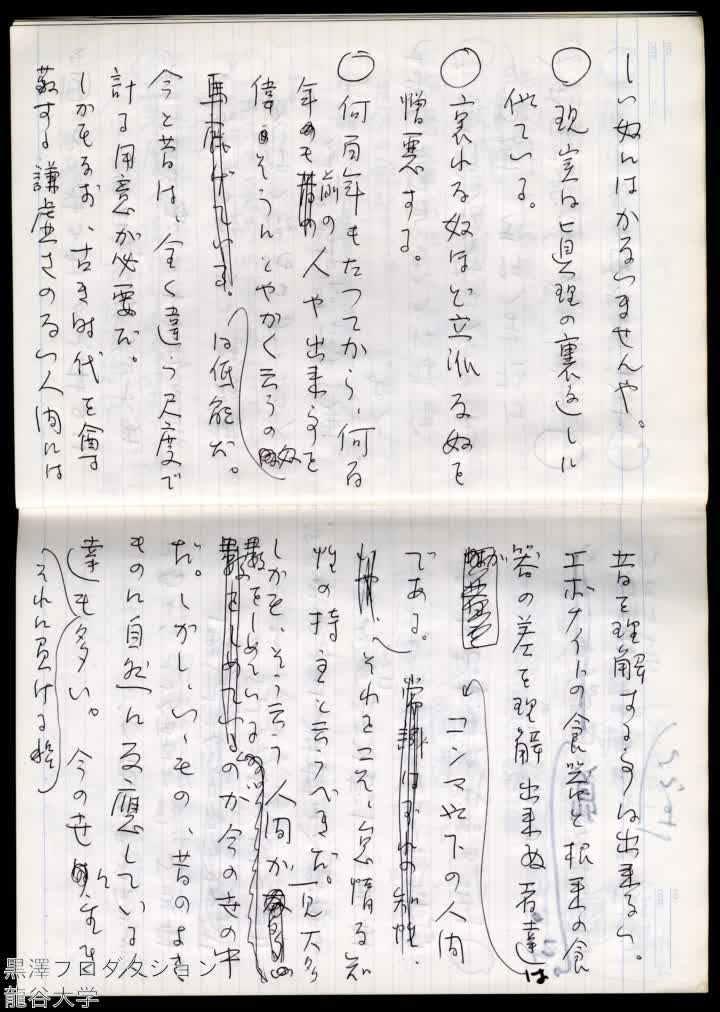 しい奴にはかないませんや。
○ 現実は真理の裏返しに
似ている。
○ 裏れる奴ほど立派な奴を
憎悪する。
○ 何百年もたってから、何百
年も前の人や出来事を
偉そうにとやかく云うの奴
は低能だ。
今と昔は、全く違う尺度で
計る用意が必要だ。
しかもなお、古き時代を尊
敬する謙虚さのない人間には
昔を理解する事は出来ない。
エボナイトの食器と根来の食
器の差を理解出来ぬ者達は
コンマ以下の人間
である。
それこそ、怠惰な知
性の持主と云うべきだ。
しかも、そう云う人間が一見大多
数をしめているのが今の世の中
だ。しかし、いいもの、昔のよき
ものに自然に反応している人
達も多い。今の世に
それに負ける程
黒澤プロダクション
龍谷大学